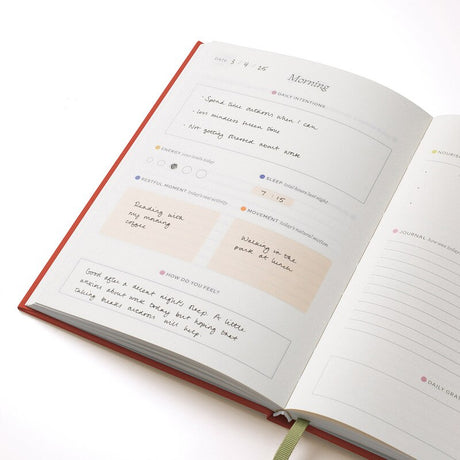 DATE 3 / 4 / 25
Morning
DAILY INTENTIONS
· Spend time outdoors when I can
· Less mindless screen time
· Not getting stressed about work
ENERGY your levels today
SLEEP total hours last night
7 : 15
RESTFUL MOMENT today's restful activity
MOVEMENT today's natural motion
Reading with
my morning
coffee
Walking in the
park at lunch
HOW DO YOU FEEL?
Good after a decent nights sleep. A little
anxious about work today but hoping that
taking breaks outdoors will help.
JOURNAL